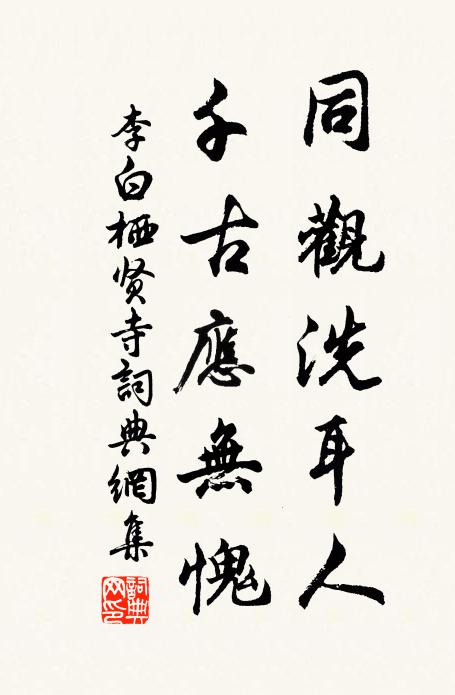 同觀洗耳人
千古應無愧
李白栖贤寺詞典網集
詞典网印